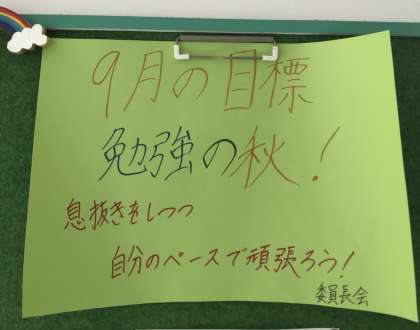 9月の目標
勉強の秋！
息抜きをしつつ
自分のペースで頑張ろう！
委員長会